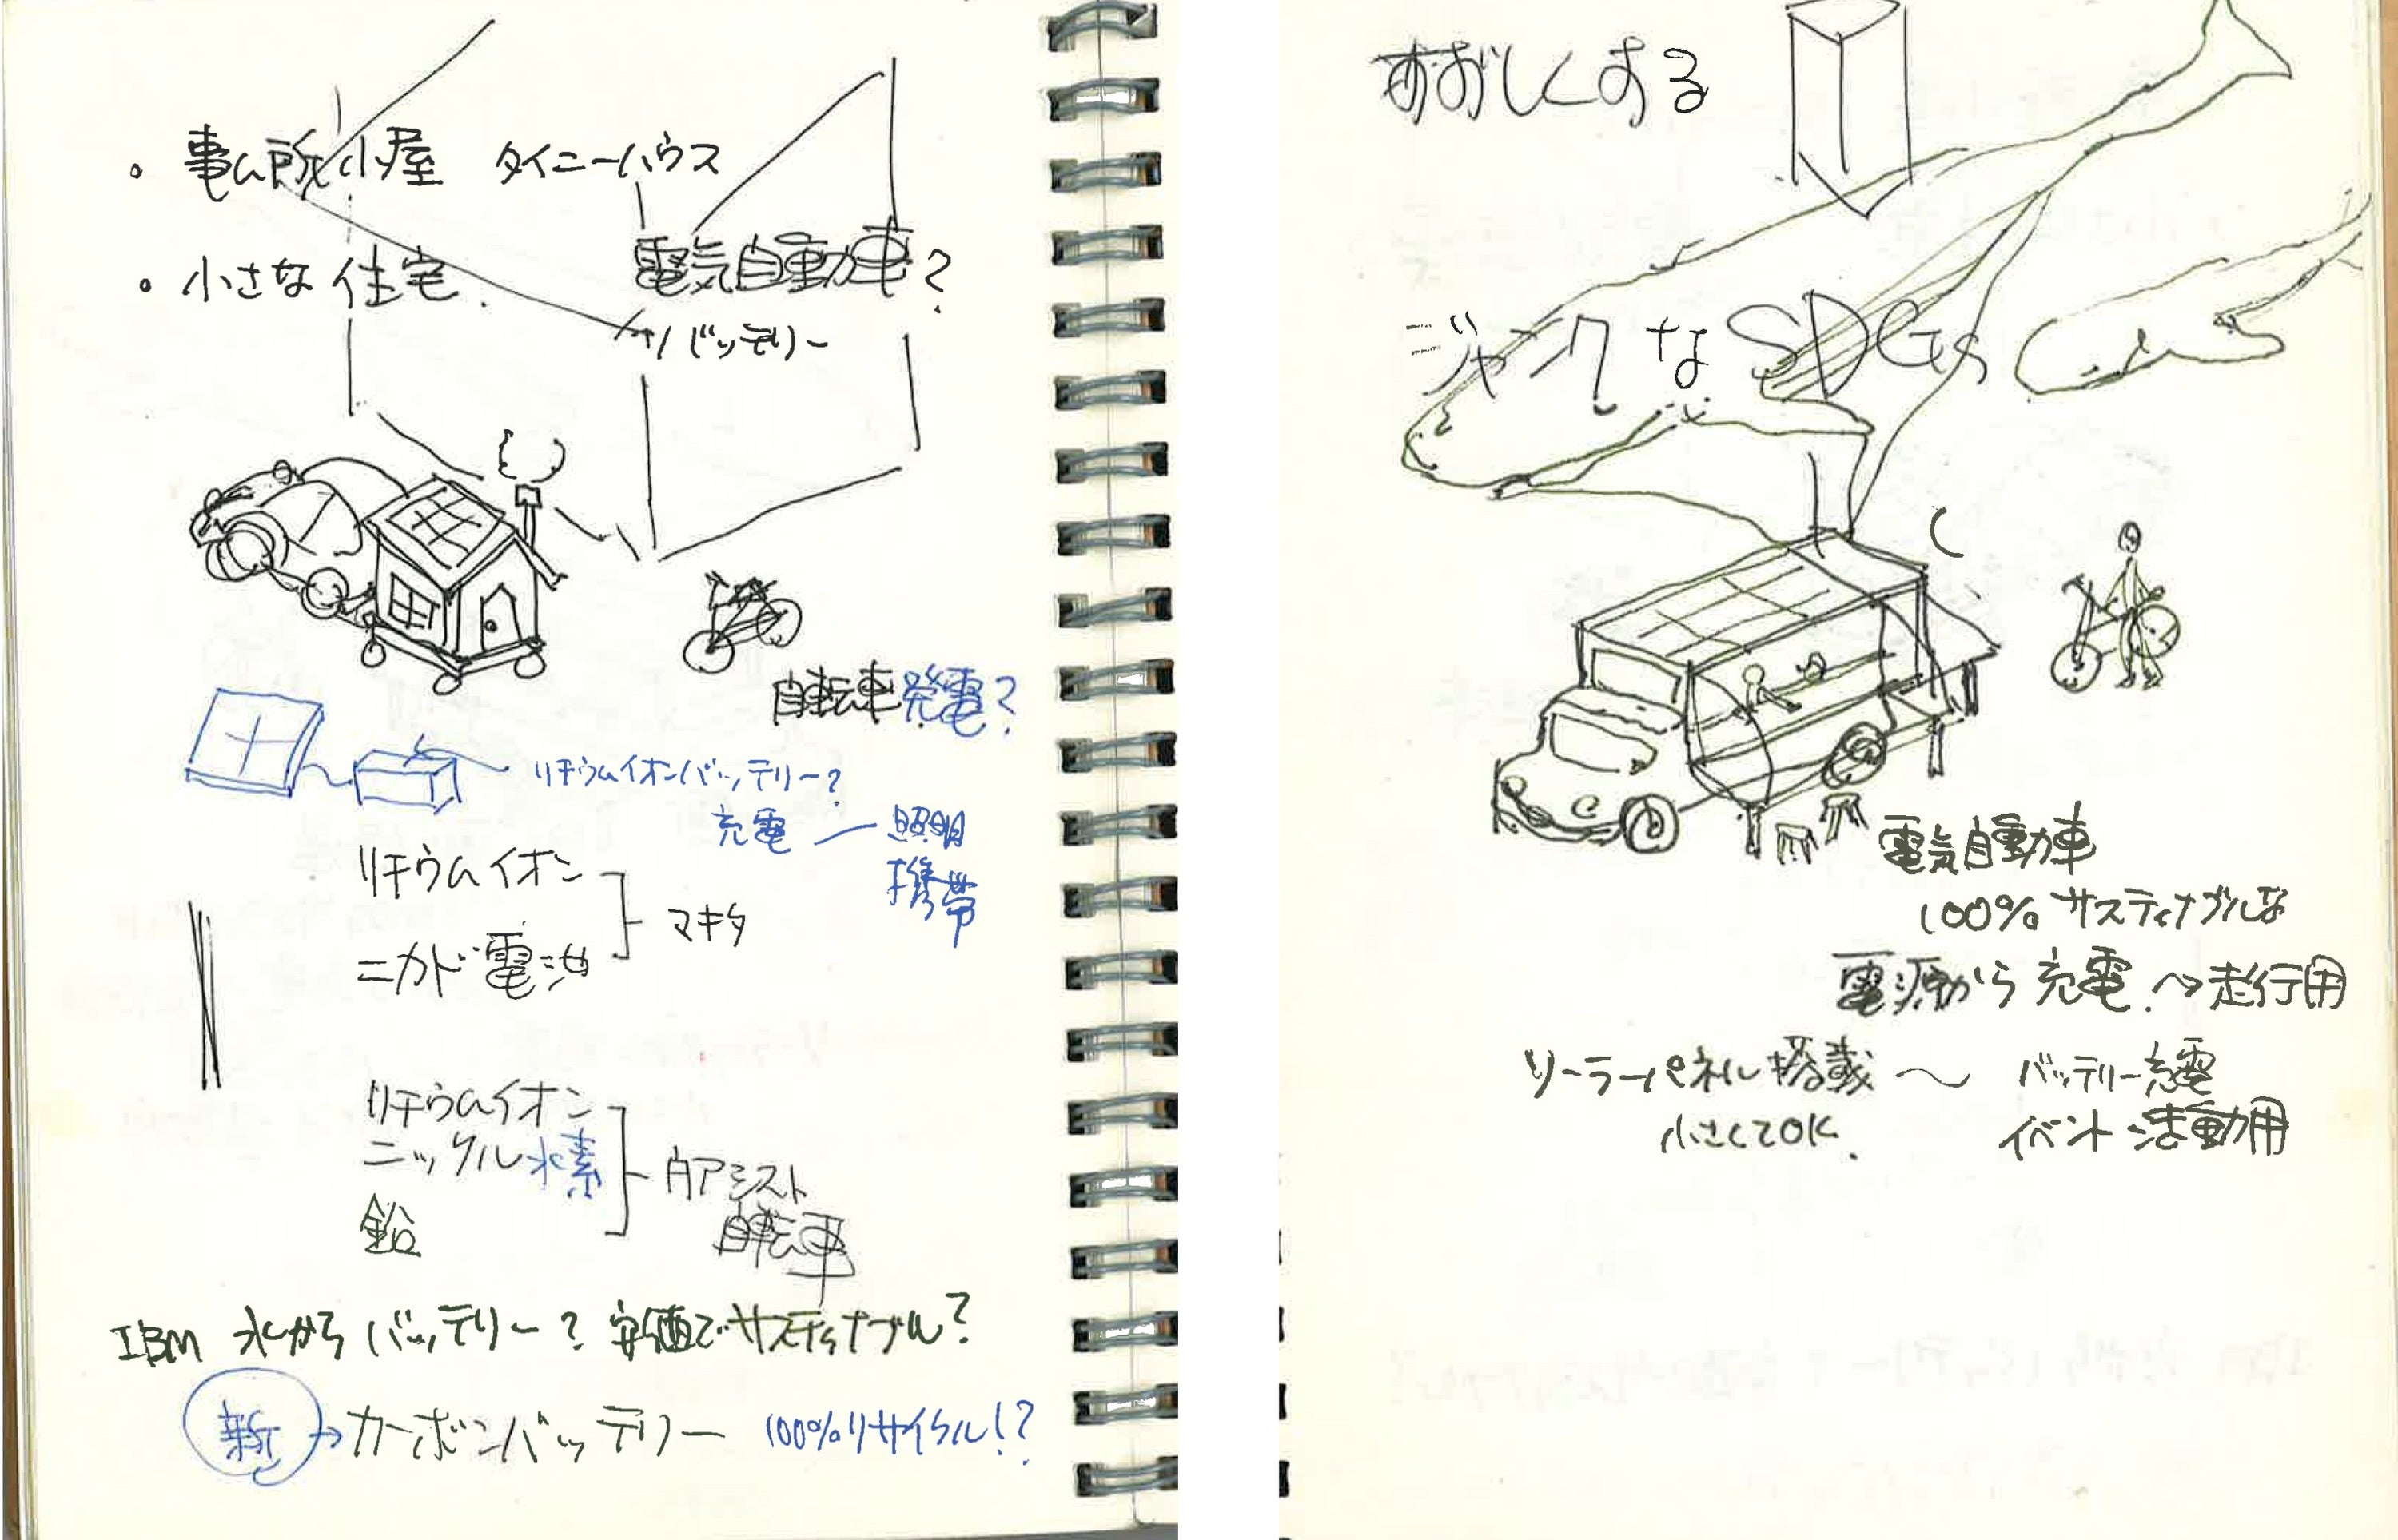 小屋 タイニーハウス
・小さな住宅
電気自動車?
バッテリー
自転車発電?
リチウムイオンバッテリー?
充電 ― 照明
携帯
リチウムイオン
ニカド電池
マキタ
リチウムイオン
ニッケル水素
鉛
アシスト
自転車
IBM 水から バッテリー? 安価でサスティナブル?
新→カーボンバッテリー 100%リサイクル!?
おおしくする
ジャンクなSDGs
電気自動車
100%サスティナブルな
電源から充電 〜走行用
ソーラーパネル搭載 〜 バッテリー充電
小さくてOK. イベント活動用